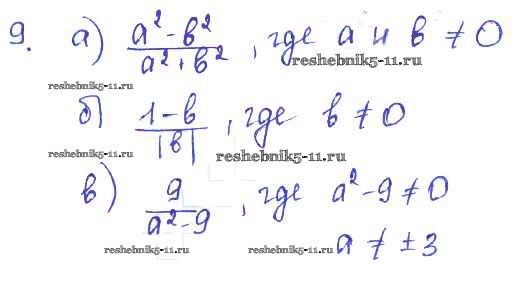 9. а) (a² - в²)/(a² + в²), где a и в ≠ 0
reshebnik5-11.ru
reshebnik5-11.ru
б) (1 - в)/|в|, где в ≠ 0
reshebnik5-11.ru
reshebnik5-11.ru
в) 9/(a² - 9), где a² - 9 ≠ 0
a ≠ ± 3
reshebnik5-11.ru
reshebnik5-11.ru